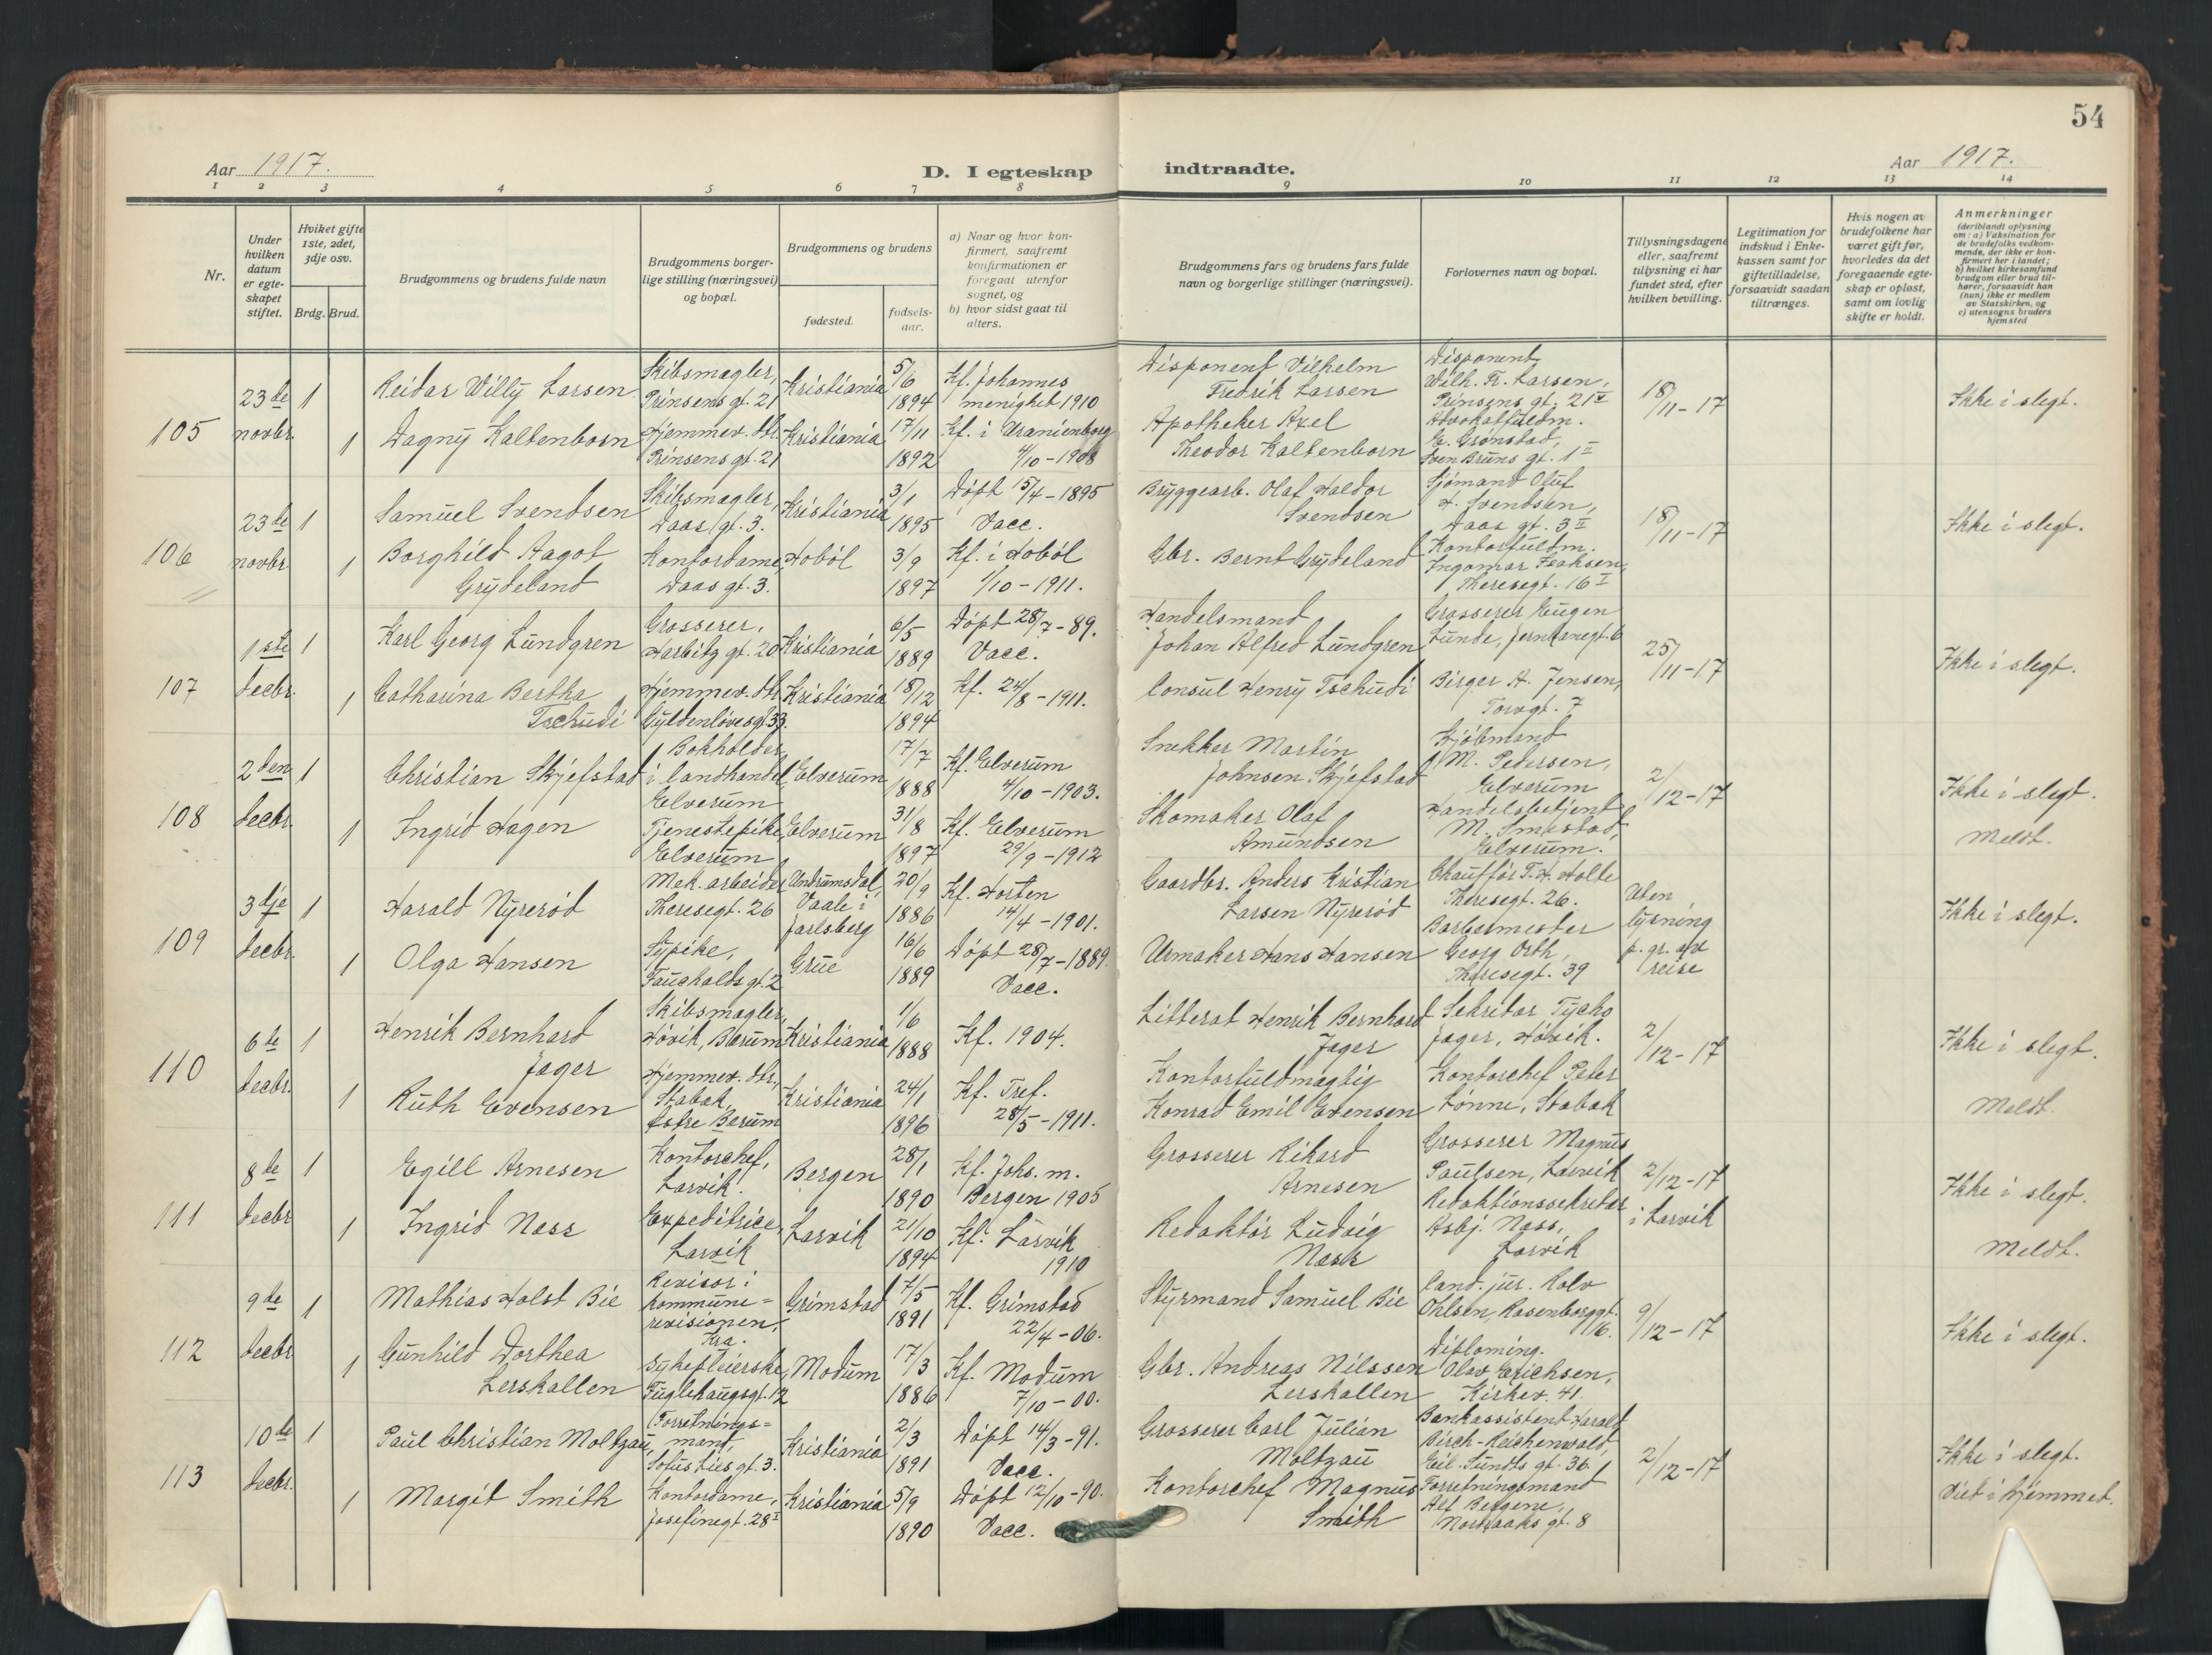 54
Aar 1917.
D. I egteskap indtraadte.
Aar 1917.
1 2 3 4 5 6 7 8 9 10 11 12 13 14
Nr.
Under hvilken datum er egte-skapet stiftet.
Hviket gifte 1ste, 2det, 3dje osv.
Brdg. Brud.
Brudgommens og brudens fulde navn
Brudgommens borger-lige stilling (næringsvei) og bopæl.
Brudgommens og brudens
fødested.
fødsels-aar.
a) Naar og hvor kon-firmert, saafremt konfirmationen er foregaat utenfor sognet, og
b) hvor sidst gaat til alters.
Brudgommens fars og brudens fars fulde navn og borgerlige stillinger (næringsvei).
Forlovernes navn og bopæl.
Tillysningsdagene eller, saafremt tillysning ei har fundet sted, efter hvilken bevilling.
Legitimation for indskud i Enke-kassen samt for giftetilladelse, forsaavidt saadan tiltrænges.
Hvis nogen av brudefolkene har været gift før, hvorledes da det foregaaende egte-skap er opløst, samt om lovlig skifte er holdt.
Anmerkninger (deriblandt oplysning om: a) Vaksination for de brudefolks vedkom-mende, der ikke er kon-firmert her i landet; b) hvilket kirkesamfund brudgom eller brud til-hører, forsaavidt han (hun) ikke er medlem av Statskirken, og c) utensogns bruders hjemsted
105
23de novbr.
1
Reidar Willy Larsen
Skibsmægler, Prinsens gt. 21
Kristiania
5/6 1894
Kf. Johannes menighet 1910
Disponent Vilhelm Fredrik Larsen
Disponent Wilh. Fr. Larsen, Prinsens gt. 21 V
18/11-17
Ikke i slegt.
1
Dagny Kaltenborn
Hjemmev. dtr. Prinsens gt. 21
Kristiania
17/11 1892
Kf. i Uranienborg 4/10-1908
Apotheker Axel Theodor Kaltenborn
Advokatfuldm. E. Grønstad, Sven Bruns gt. 1 II
106
23de novbr
1
Samuel Svendsen
Skibsmægler, Daas gt. 3.
Kristiania
3/1 1895
Døpt 15/4-1895 Vacc.
Bryggearb. Olaf Haldor Svendsen
Sjømand Oluf H. Svendsen, Daas gt. 3 II
18/11-17
Ikke i slegt.
1
Borghild Aagot Grydeland
Kontordame, Daas gt. 3.
Hobøl
3/9 1897
Kf. i Hobøl 1/10-1911.
Gbr. Bernt Grydeland
Kontorfuldm. Ingomar Isaksen, Theresegt. 16 I
107
1ste decbr.
1
Karl Georg Lundgren
Grosserer, Harbitz gt. 20
Kristiania
6/5 1889
Døpt 28/7-89. Vacc.
Handelsmand Johan Alfred Lundgren
Grosserer Eugen Lunde, Jernbanegt. 6
25/11-17
Ikke i slegt.
1
Catharina Bertha Tschudi
Hjemmev. dtr. Gyldenløvesgt. 33.
Kristiania
18/12 1894
Kf. 24/8-1911.
Consul Henry Tschudi
Birger A. Jensen, Torvgt. 7
108
2den decbr.
1
Christian Skjefstad
Bokholder i landhandel, Elverum
Elverum
17/7 1888
Kf. Elverum 4/10-1903.
Snekker Martin Johnsen Skjefstad
Kjøbmand M. Pedersen, Elverum
2/12-17
Ikke i slegt.
Meldt.
1
Ingrid Hagen
Tjenestepike, Elverum
Elverum
31/8 1897
Kf. Elverum 29/9-1912
Skomaker Olaf Amundsen
Handelsbetjent M. Smestad, Elverum.
109
3dje decbr.
1
Harald Nyrerød
Mek. arbeider, Theresegt. 26
Undrumsdal, Vaale i Jarlsberg
20/9 1886
Kf. Horten 14/4-1901.
Gaardbr. Anders Kristian Larsen Nyrerød
Chauffør T. H. Holte Theresegt. 26.
Uten lysning p. gr. av reise
Ikke i slegt.
1
Olga Hansen
Sypike, Fauchalds gt. 2
Grue
16/6 1889
Døpt 28/7-1889. Vacc.
Urmaker Hans Hansen
Barbermester Georg Orth, Theresegt. 39
110
6te decbr.
1
Henrik Bernhard Jæger
Skibsmægler, Høvik, Bærum
Kristiania
1/6 1888
Kf. 1904.
Litterat Henrik Bernhard Jæger
Sekretær Tycho Jæger, Høvik.
2/12-17
Ikke i slegt.
Meldt.
1
Ruth Evensen
Hjemmev. dtr., Stabæk, Østre Bærum
Kristiania
24/1 1896
Kf. Tref. 28/5-1911.
Kontorfuldmægtig Konrad Emil Evensen
Kontorchef Peter Lønne, Stabæk
111
8de decbr
1
Egill Arnesen
Kontorchef, Larvik.
Bergen
28/1 1890
Kf. Johs. m. Bergen 1905
Grosserer Rikard Arnesen
Grosserer Magnus Paulsen, Larvik
2/12-17 i Larvik
Ikke i slegt.
Meldt.
1
Ingrid Næss
Expeditrice, Larvik
Larvik
21/10 1894
Kf. Larvik 1910
Redaktør Ludvig Næss
Redaktionssekretær Asbj. Næss, Larvik
112
9de decbr
1
Mathias Holst Bie
Revisor i kommune=revisionen, Kra.
Grimstad
7/5 1891
Kf. Grimstad 22/4-06.
Styrmand Samuel Bie
Cand. jur. Rolv Ohlsen, Rosenborggt. 16.
9/12-17
Ikke i slegt.
1
Gunhild Dorthea Lerskallen
Sykepleierske, Fuglehaugsgt. 12
Modum
17/3 1886
Kf. Modum 7/10-00.
Gbr. Andreas Nilssen Lerskallen
Diploming. Olav Erichsen, Kirkev. 41.
113
10de decbr.
1
Paul Christian Moltzau,
Forretnings=mand, Sofus Lies gt. 3.
Kristiania
2/3 1891
Døpt 14/3-91. Vacc.
Grosserer Carl Julian Moltzau
Bankassistent Harald Birch-Reichenwald, Eil. Sundts gt. 36
2/12-17
Ikke i slegt.
Viet i hjemmet.
1
Margit Smith
Kontordame, Josefinegt. 28 I
Kristiania
5/9 1890
Døpt 12/10-90. Vacc.
Kontorchef Magnus Smith
Forretningsmand Alf Bergene, Nordraaks gt. 8